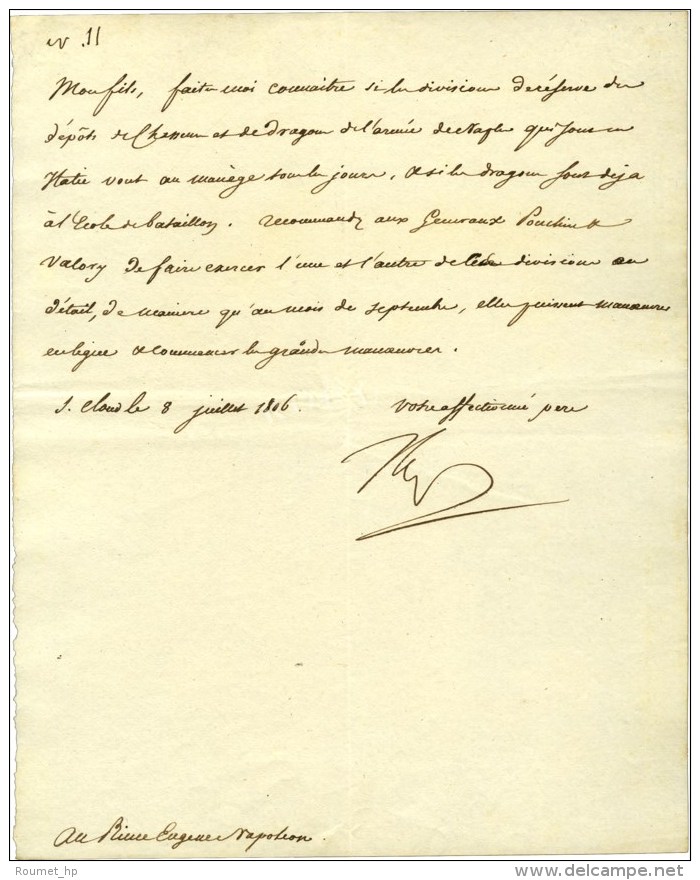 N. 11
Mon fils, faites moi connaitre si les divisions de réserve des
dépôts de Chasseurs et de Dragons de l'armée de Naples qui sont en
Italie vont au manège tous les jours, & si les dragons sont déja
à l'Ecole de bataillon. recommandez aux Generaux Pouchin &
Valory de faire exercer l'une et l'autre de divisions en
détail, de maniere qu'au mois de septembre, elles puissent manœuvrer
en ligne & commencer les grandes manœuvres.
S. Cloud le 8 juillet 1806. Votre affectionné pere
Nap
Au Prince Eugene Napoleon.
Roumet_hp
www.delcampe.net